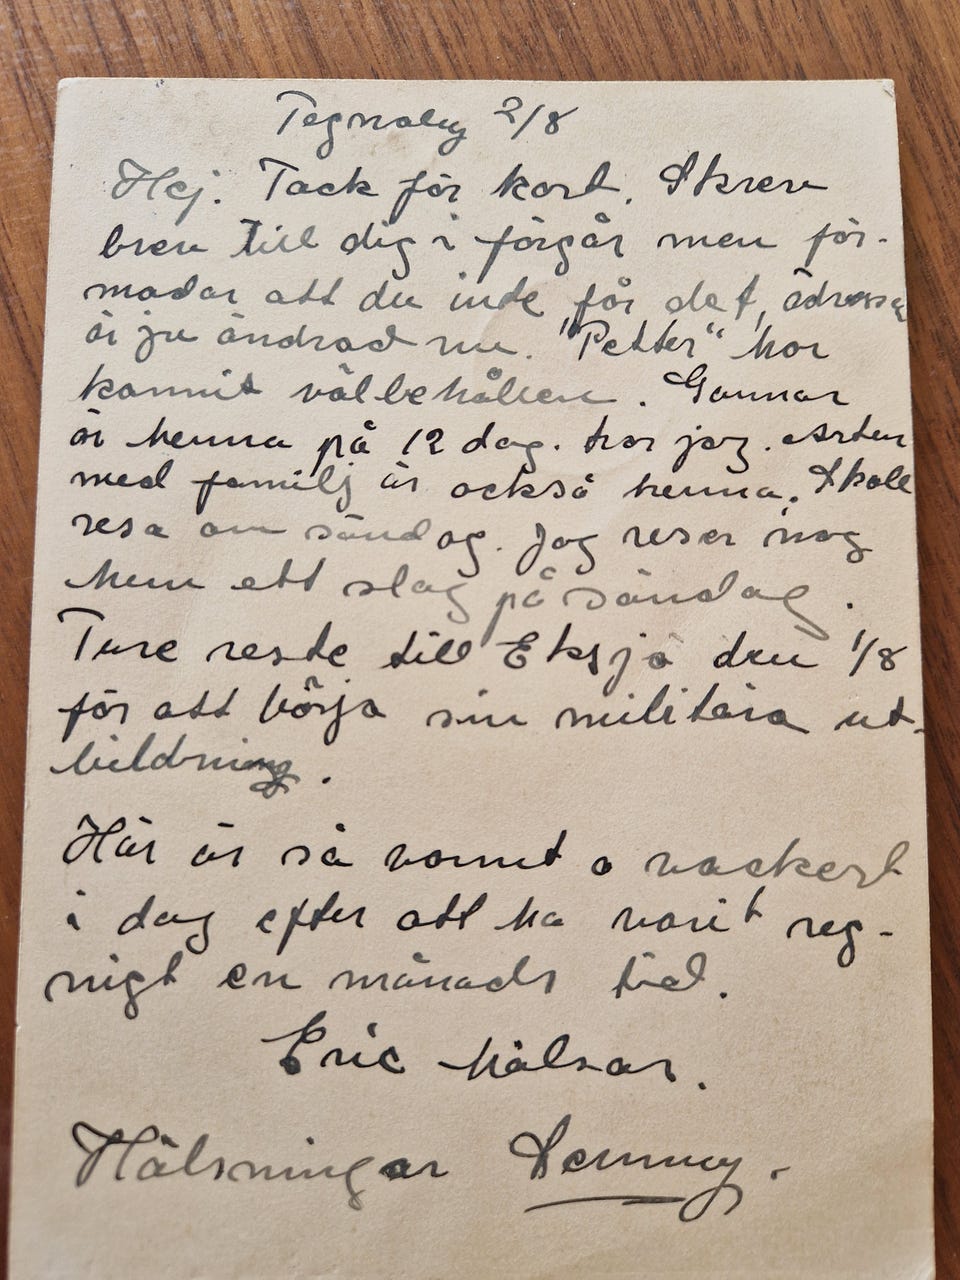 Tegnaby 2/8
Hej. Tack för kort. Skrev
brev till dig i förgår men för-
modar att du inte får det, adressen
är ju ändrad nu. "Petter" har
kommit välbehållen. Gunnar
är hemma på 12 dag. tror jag.
med familj är också hemma. Skall
resa om söndag. Jag reser nog
hem ett slag på söndag.
Ture reste till Eksjö den 1/8
för att börja sin militära ut-
bildning.
Här är så varmt o vackert
i dag efter att ha varit reg-
nigt en månads tid.
Eric hälsar.
Hälsningar